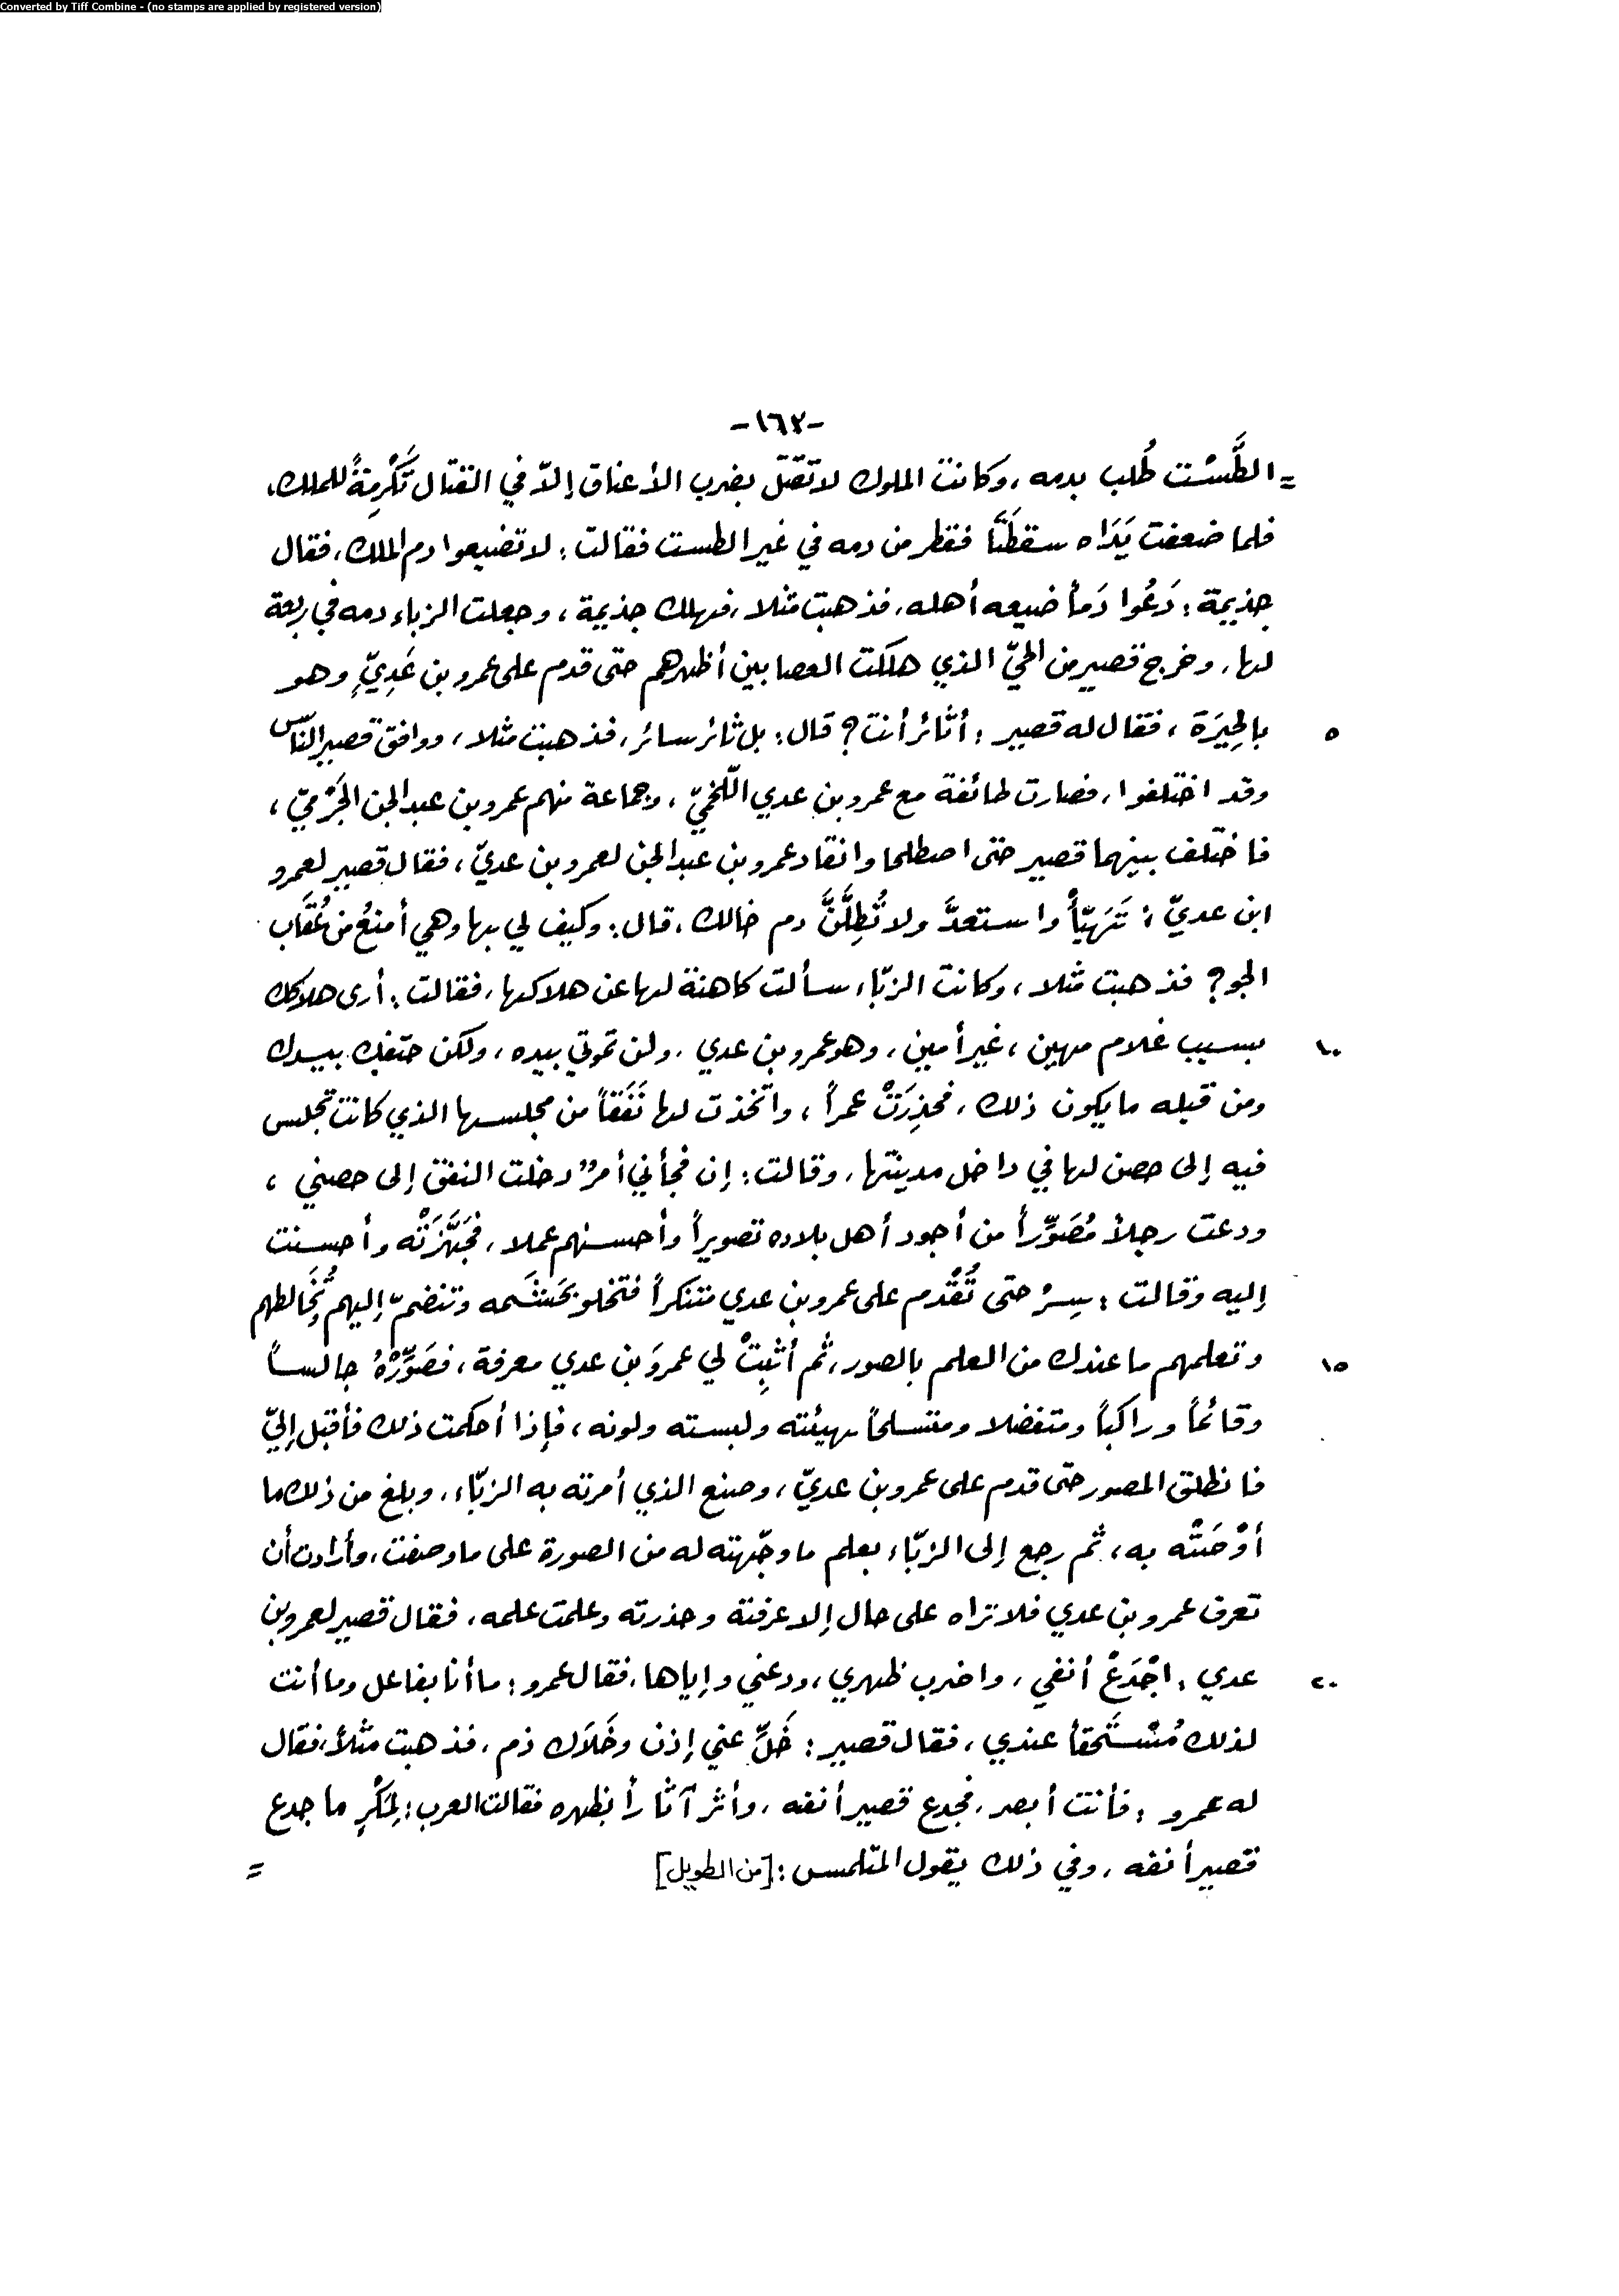 Converted by Tiff Combine - (no stamps are applied by registered version)
-١٦٢-
= الطَّسْت طُلب بدمه، وكانت الملوك لا تقتل بضرب الأعناق إلاّ في القتال تَكْرِمةً للملك،
فلما ضعفت يَدَاه سقطَتَا فقطر من دمه في غير الطست فقالت: لا تضيعوا دم الملك، فقال
جذيمة: دَعُوا دَماً ضيعه أهله، فذهبت مثلا، فهلك جذيمة، وجعلت الزباء دمه في ربعة
لها، وخرج قصير من الحيّ الذي هلكت العصا بين أظهرهم حتى قدم على عمرو بن عَدِيٍّ وهو
بالحِيَرَة، فقال له قصير: أثائر أنت؟ قال: بل ثائر سائر، فذهبت مثلا، ووافق قصير النّاس ٥
وقد اختلفوا، فصارت طائفة مع عمرو بن عدي اللّخميّ، وجماعة منهم عمرو بن عبد الجن الجَرْميّ،
فاختلف بينهما قصير حتى اصطلحا وانقاد عمرو بن عبد الجن لعمرو بن عديّ، فقال قصير لعمرو
ابن عديّ: تَهَيّأْ واستعدَّ ولا تُطِلَّنَّ دم خالك، قال: وكيف لي بها وهي أمنعُ من عُقَاب
الجو؟ فذهبت مثلا، وكانت الزبّاء سألت كاهنة لها عن هلاكها، فقالت: أرى هلاكك
بسبب غلام مهين، غير أمين، وهو عمرو بن عدي، ولن تموتي بيده، ولكن حتفك بيدك ١٠
ومن قبله ما يكون ذلك، فحذِرَتْ عمراً، واتّخذت لها نَفَقاً من مجلسها الذي كانت تجلس
فيه إلى حصن لها في داخل مدينتها، وقالت: إن فجأني أمرٌ دخلت النفق إلى حصني،
ودعت رجلاً مُصَوِّراً من أجود أهل بلاده تصويراً وأحسنهم عملا، فجَهَّزَتْه وأحسنت
إليه وقالت: سِرْ حتى تُقْدم على عمرو بن عدي متنكراً فتخلو بحَشَمه وتنضمّ إليهم تُخَالطهم
وتعلمهم ما عندك من العلم بالصور، ثم أثبِتْ لي عمرَو بن عدي معرفة، فصَوِّرْهُ جالساً ١٥
وقائماً وراكباً ومتفضلا ومتسلحاً بهيئته ولبسته ولونه، فإذا أحكمت ذلك فأقبل إليّ
فانطلق المصور حتى قدم على عمرو بن عديّ، وصنع الذي أمرته به الزبّاء، وبلغ من ذلك ما
أوْصَتْه به، ثم رجع إلى الزبّاء بعلم ما وجّهته له من الصورة على ما وصفت، وأرادت أن
تعرف عمرو بن عدي فلا تراه على حال إلا عرفته وحذرته وعلمت علمه، فقال قصير لعمرو بن
عدي: اجْدَعْ أنفي، واضرب ظهري، ودعني وإياها، فقال عمرو: ما أنا بفاعل وما أنت ٢٠
لذلك مُسْتَحقاً عندي، فقال قصير: خَلِّ عني إذن وخَلَاك ذم، فذهبت مثلاً، فقال
له عمرو: فأنت أبصر، فجدع قصير أنفه، وأثر آثاراً بظهره فقالت العرب: لِمَكْرٍ ما جدع
قصير أنفه، وفي ذلك يقول المتلمس: [من الطويل] =